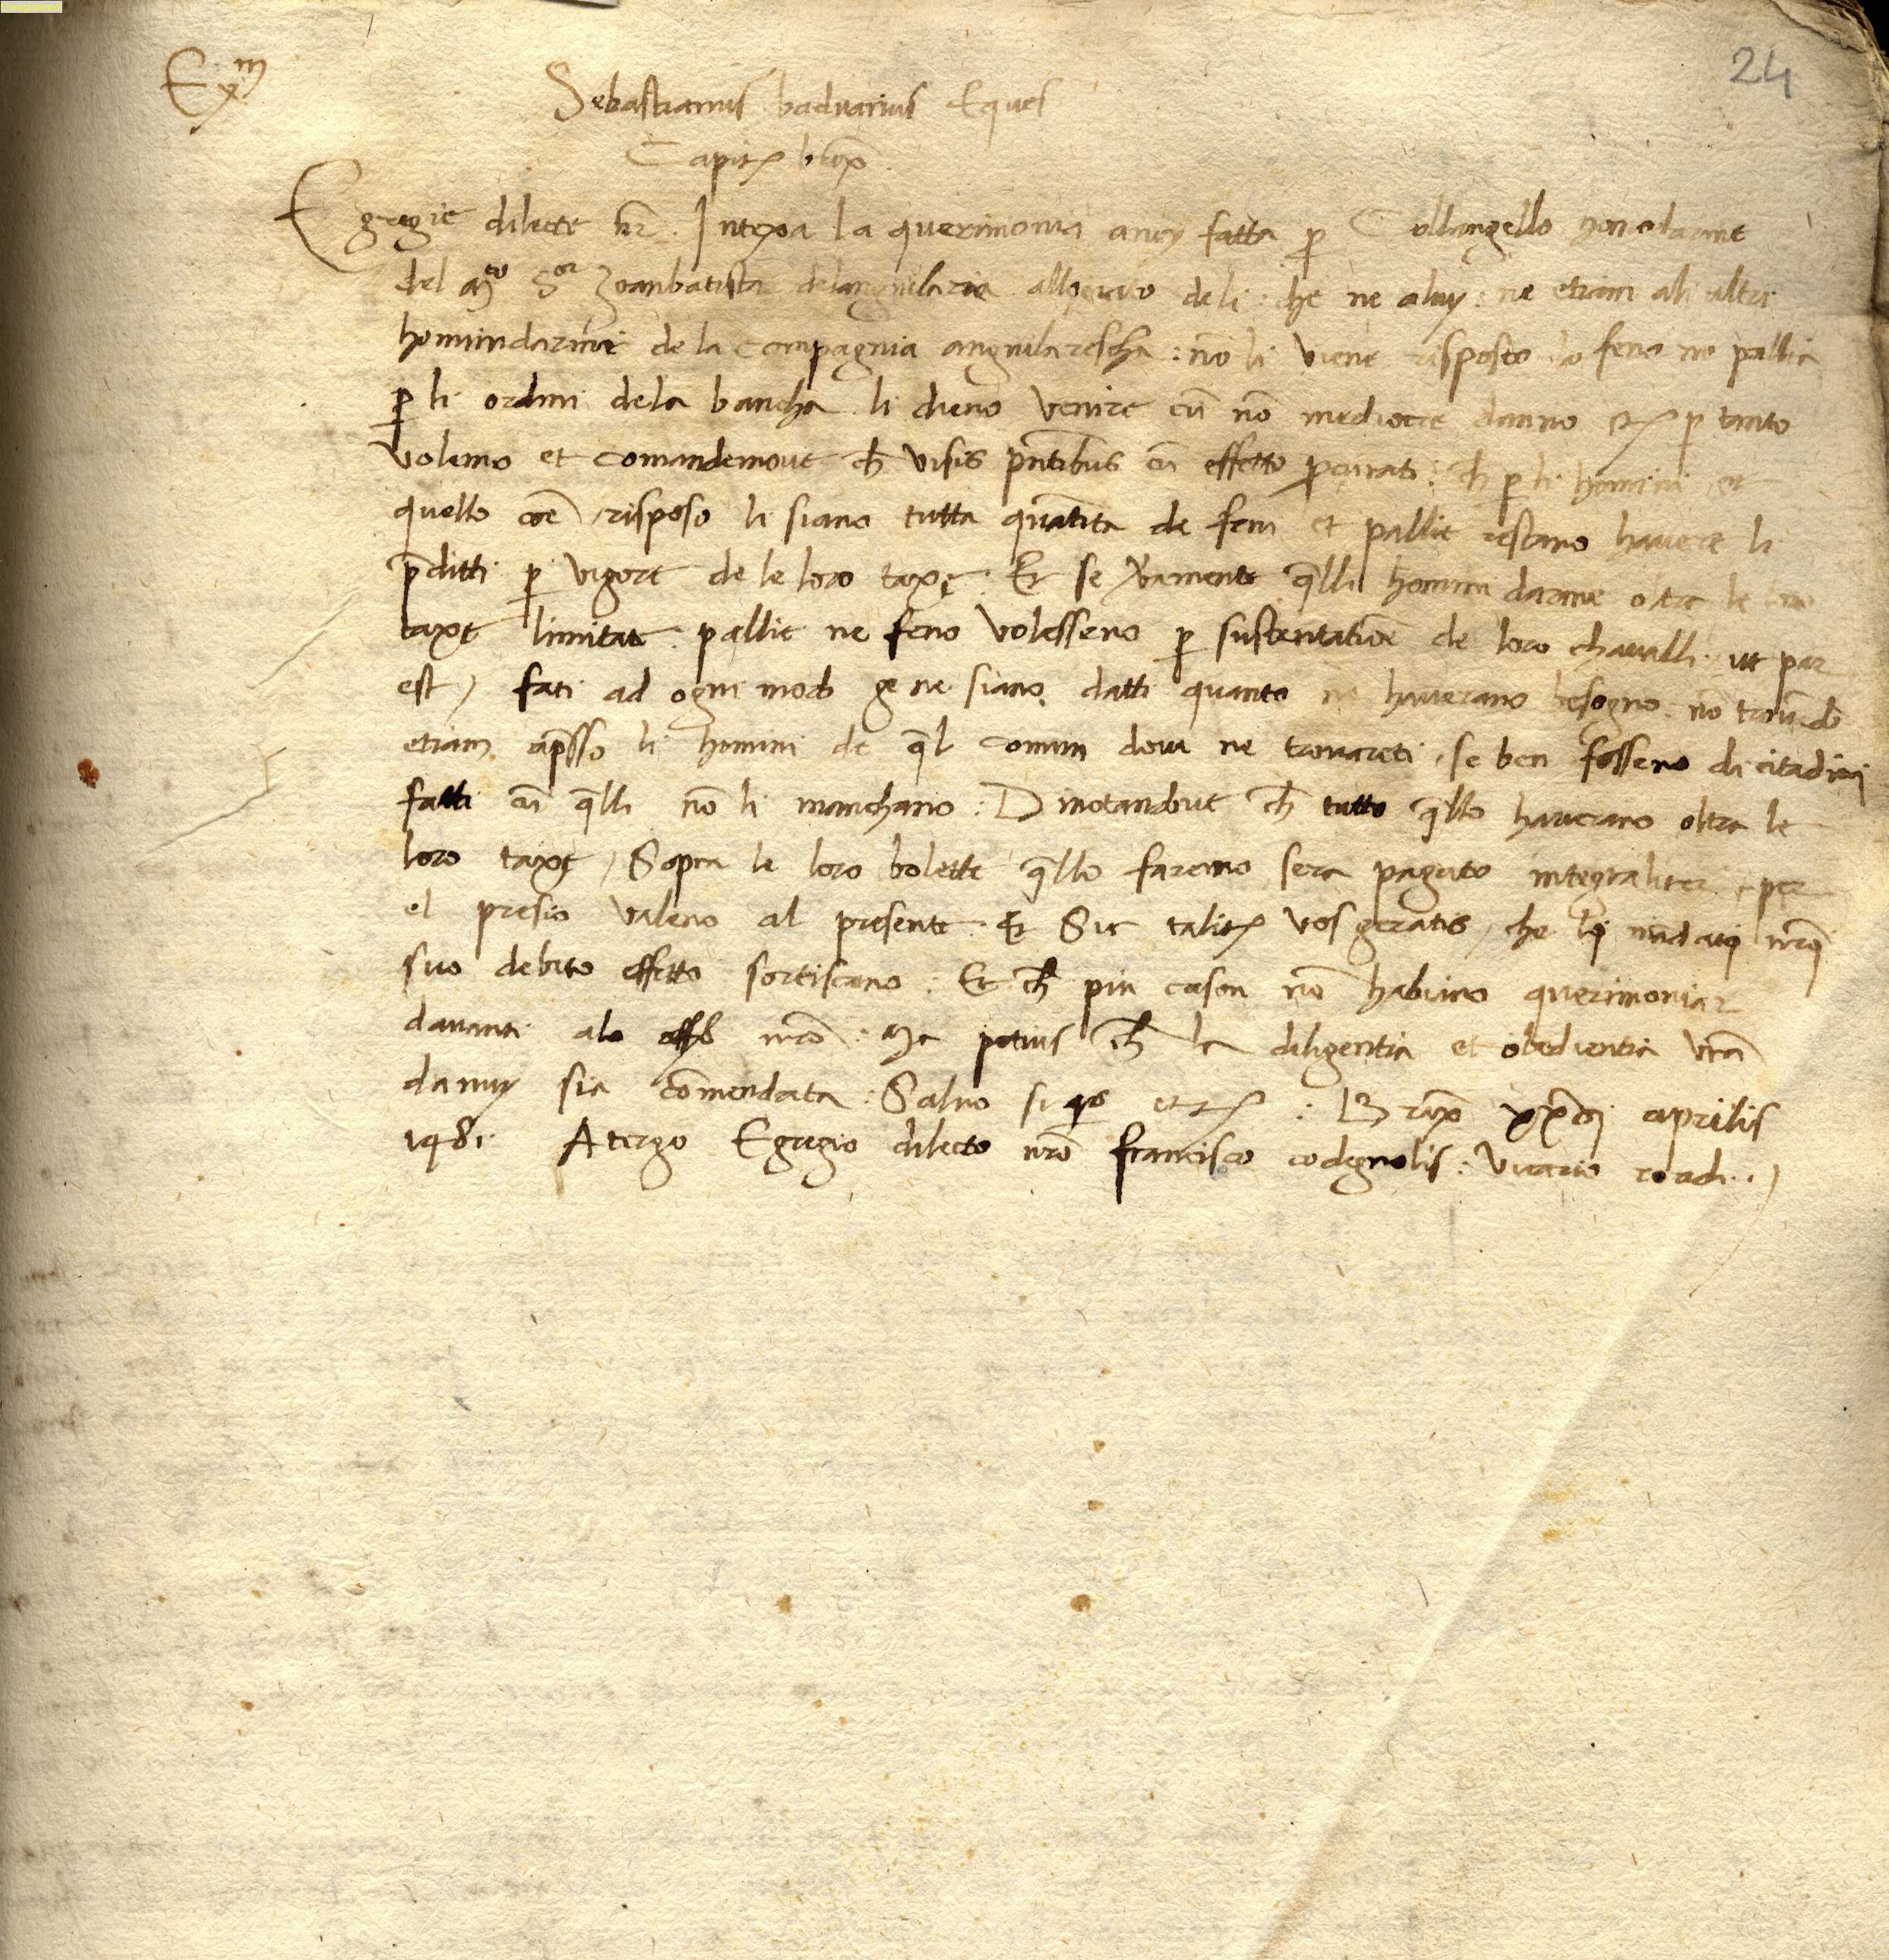 24
Exm
Sebastianus baduarius Eques
Capit. brix.
Egregie dilecte nr̄. Intexa la querimonia a nuy fatta p̱ Collangello homodarme
del mco Sor Zoanbatista delangnilaria allogiato de li: che ne aluy: ne etiam ali altri
homundarme de la compagnia angnilarescha: nō li viene risposto do feno ne pallia
p̱ li ordini dela bancha li dieno venire cū nō mediocre danno etc p̱ tanto
volemo et comandemoue ch̄ visis pn̄tibus cū effetto procurati: ch̄ p̱ li homini et
quello coē risposo li siano tutta quātita de feni et pallie restano hauere li
p̄ditti p̱ vigore de le loro taxe: Et se veramente q̄lli homini darme oltre le loro
taxe limitate pallie ne feno volesseno p̱ sustentatiōe de loro chaualli, ut par
est, fati ad ogni modo ge ne siano datti quanto ne hauerano besogno: nō trouādo
etiam apsso li homini de q̄l comun doue ne trouareti, se ben fosseno di citadini
fatti cū q̄lli nō li manchano: Dinotandoue ch̄ tutto q̄llo hauerano oltra le
loro taxe, Sopra le loro bolette q̄llo faremo sera pagato integraliter, per
el presio valeno al presente. Et Sic talit. vos geratis, che lj mādatj nr̄j
suo debito effetto sortiscano: Et ch̄ piu cason nō habiino querimoniar
dauanti alo offo nr̄o: Ma potius ch̄ la diligentia et obedientia vr̄a
da nuy sia cōmendata: Saluo si qs etc: Brixe xxij aprilis
1481. Atergo Egregio dilecto nr̄o francisco codegnolis: vicario roadi.,